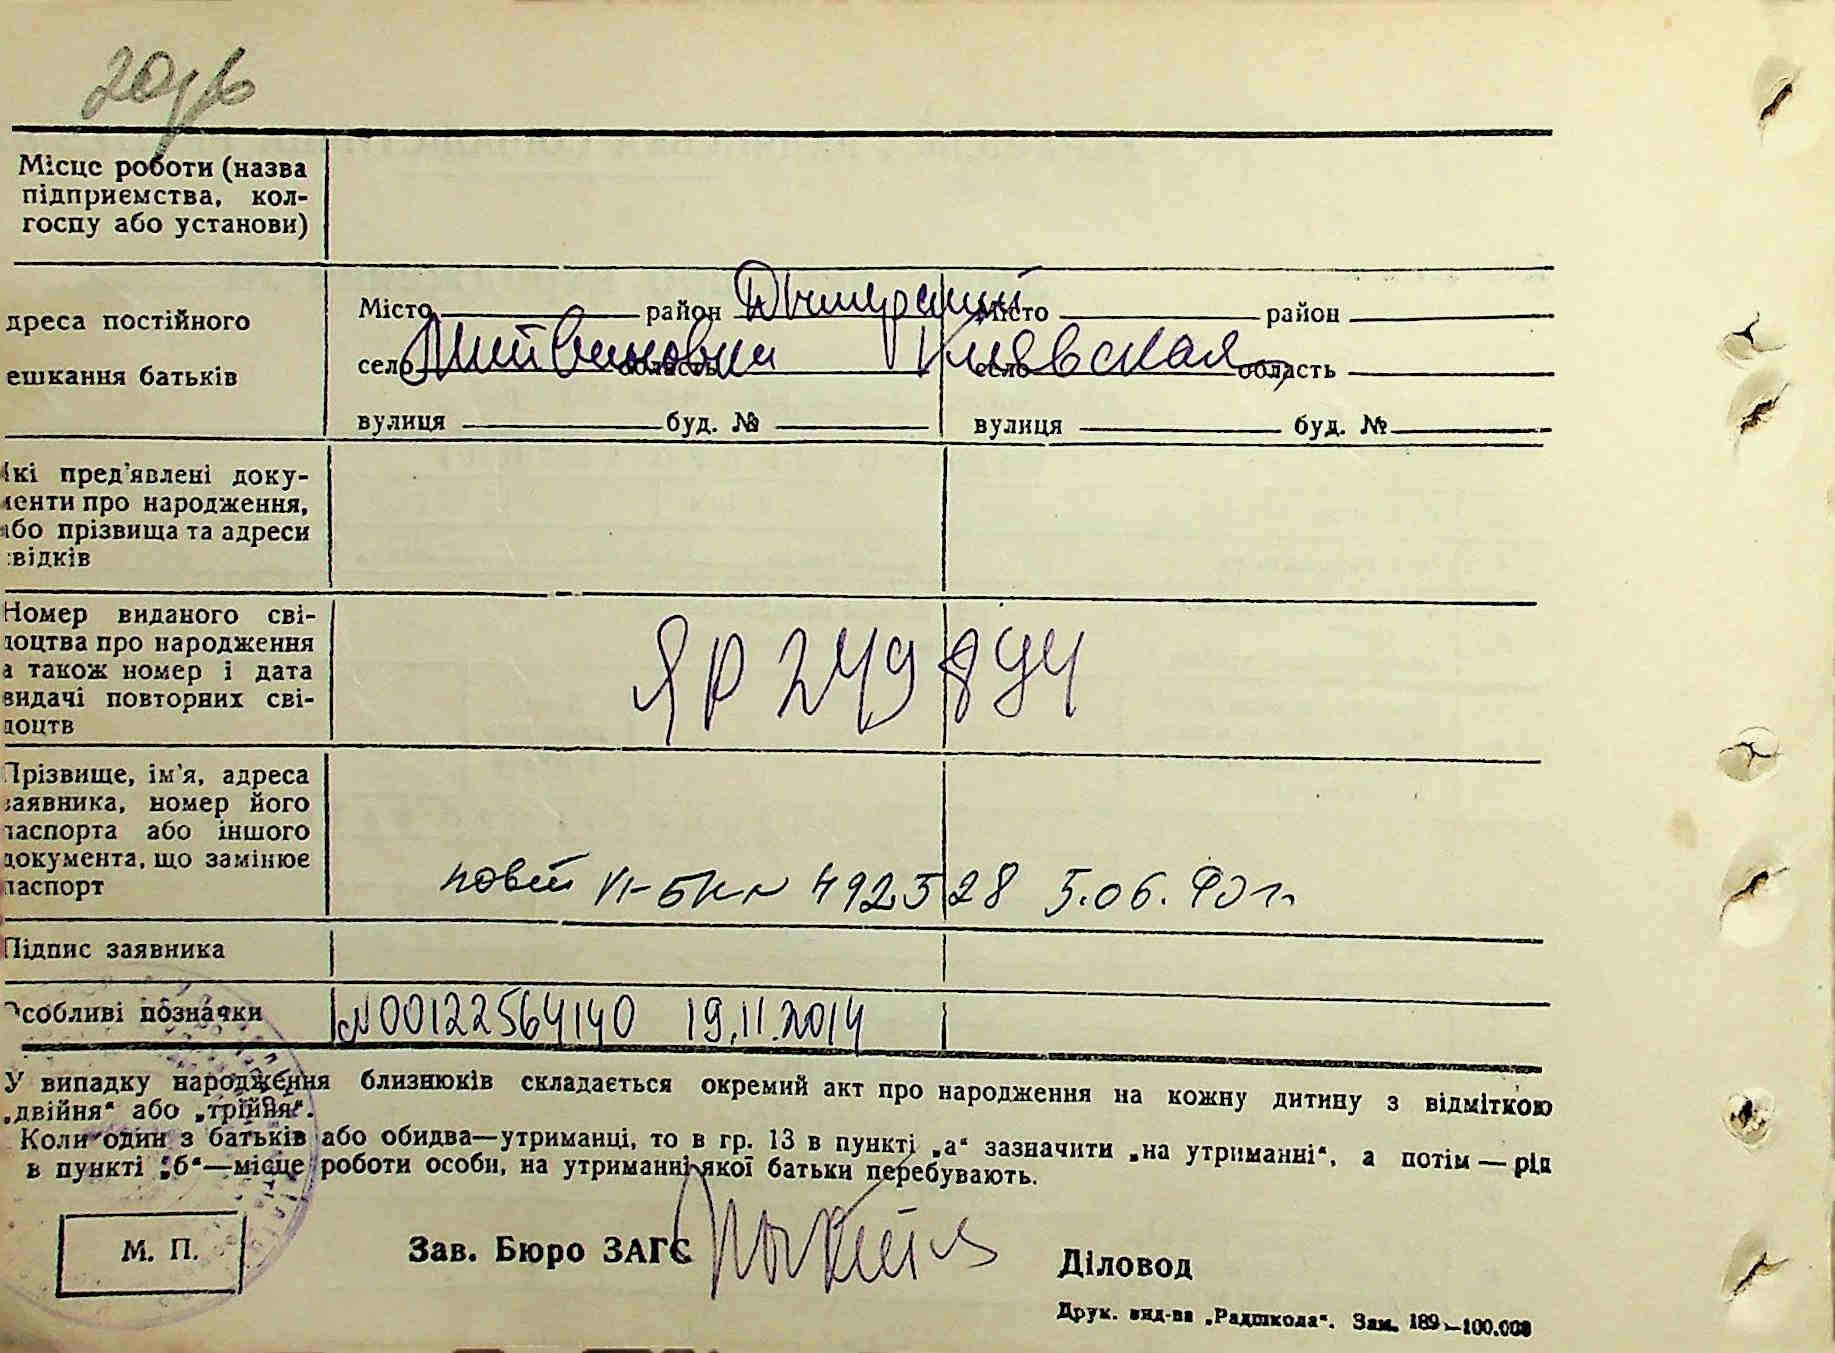 Місце роботи (назва
підприємства, кол-
госпу або установи)
дреса постійного
ешкання батьків
Місто район Дымерский Місто район
село Литвиновка область Киевская село область
вулиця буд. № вулиця буд. №
кі пред'явлені доку-
менти про народження,
або прізвища та адреси
свідків
Номер виданого сві-
доцтва про народження
а також номер і дата
видачі повторних сві-
доцтв
ЯР 249894
Прізвище, ім'я, адреса
заявника, номер його
паспорта або іншого
документа, що замінює
паспорт
повт VI-БК № 492528 5.06.90 г.
Підпис заявника
Особливі позначки
№ 00122564140 19.11.2014
У випадку народження близнюків складається окремий акт про народження на кожну дитину з відміткою
„двійня“ або „трійня“.
Коли один з батьків або обидва—утриманці, то в гр. 13 в пункті „а“ зазначити „на утриманні“, а потім — рід
в пункті „б“—місце роботи особи, на утриманні якої батьки перебувають.
М. П.
Зав. Бюро ЗАГС
Діловод
Друк. вид-ва „Радшкола“. Зам. 189—100.000